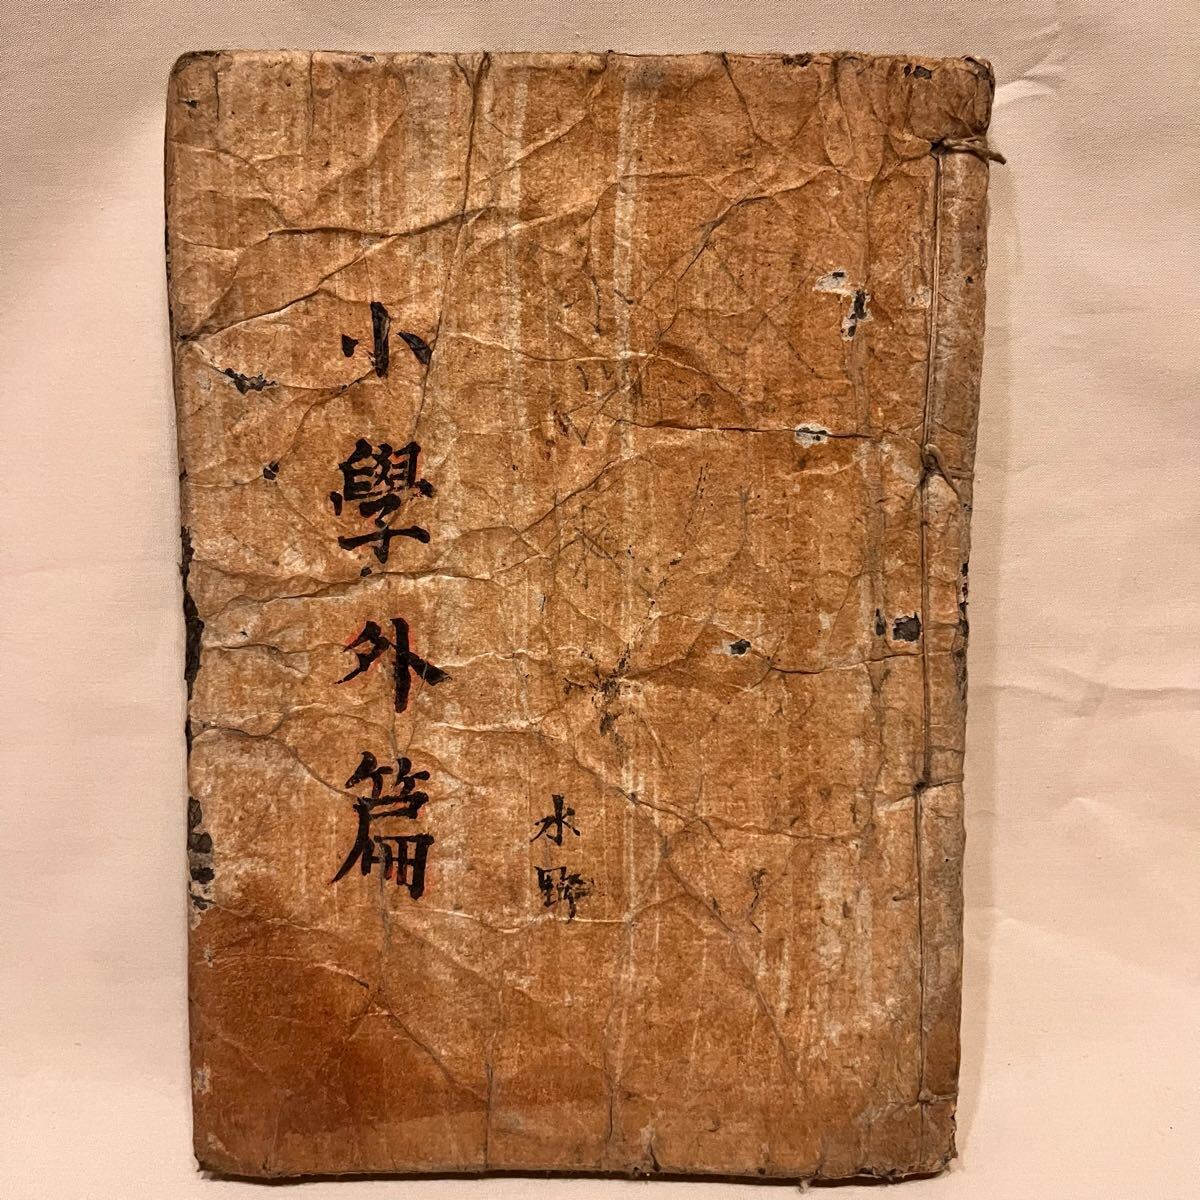 小學外篇
水野